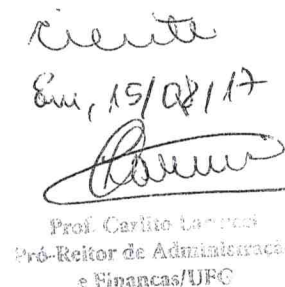 Ciente
Em, 15/08/17
Prof. Carlito
Pró-Reitor de Administraçã
e Finanças/UFG